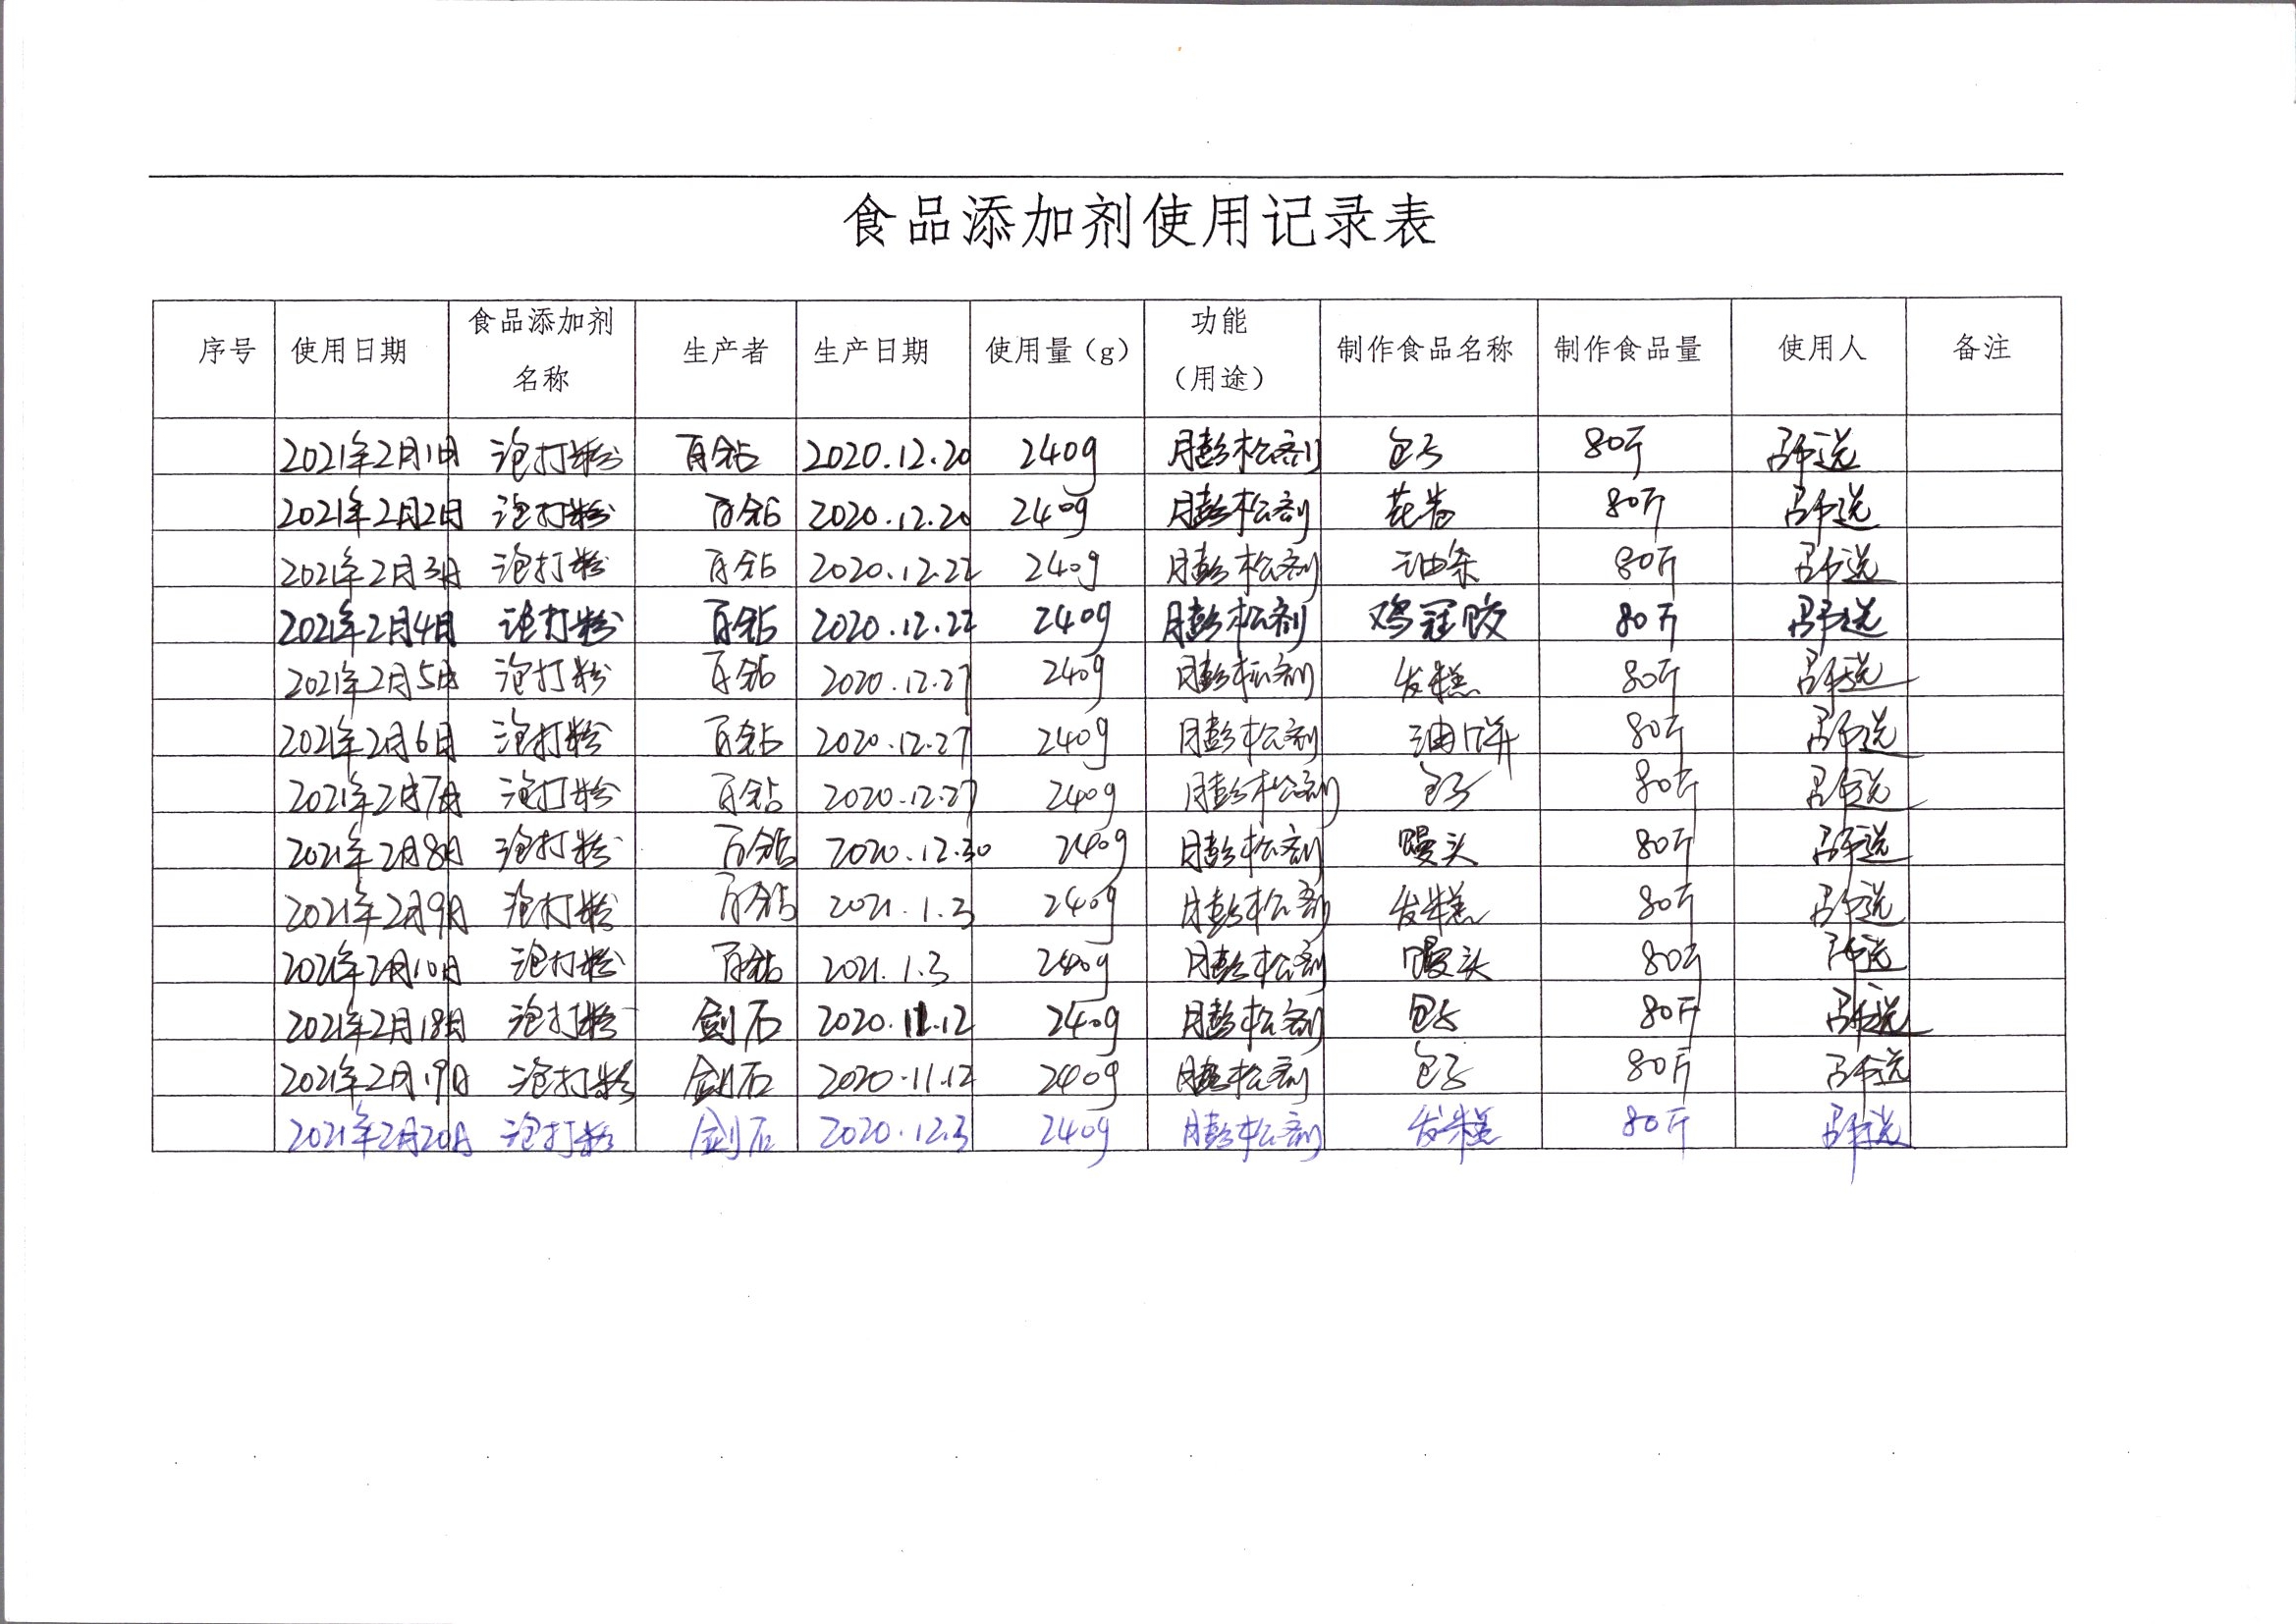 食品添加剂使用记录表
序号 使用日期 食品添加剂名称 生产者 生产日期 使用量（g） 功能（用途） 制作食品名称 制作食品量 使用人 备注
2021年2月1日 泡打粉 百钻 2020.12.20 240g 膨松剂 包子 80斤
2021年2月2日 泡打粉 百钻 2020.12.20 240g 膨松剂 花卷 80斤
2021年2月3日 泡打粉 百钻 2020.12.22 240g 膨松剂 油条 80斤
2021年2月4日 泡打粉 百钻 2020.12.22 240g 膨松剂 鸡冠饺 80斤
2021年2月5日 泡打粉 百钻 2020.12.27 240g 膨松剂 发糕 80斤
2021年2月6日 泡打粉 百钻 2020.12.27 240g 膨松剂 油饼 80斤
2021年2月7日 泡打粉 百钻 2020.12.27 240g 膨松剂 包子 80斤
2021年2月8日 泡打粉 百钻 2020.12.30 240g 膨松剂 馒头 80斤
2021年2月9日 泡打粉 百钻 2021.1.3 240g 膨松剂 发糕 80斤
2021年2月10日 泡打粉 百钻 2021.1.3 240g 膨松剂 馒头 80斤
2021年2月18日 泡打粉 剑石 2020.11.12 240g 膨松剂 包子 80斤
2021年2月19日 泡打粉 剑石 2020.11.12 240g 膨松剂 包子 80斤
2021年2月20日 泡打粉 剑石 2020.12.3 240g 膨松剂 发糕 80斤